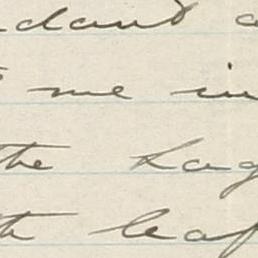 dant a
me in
the Lag
th leaf